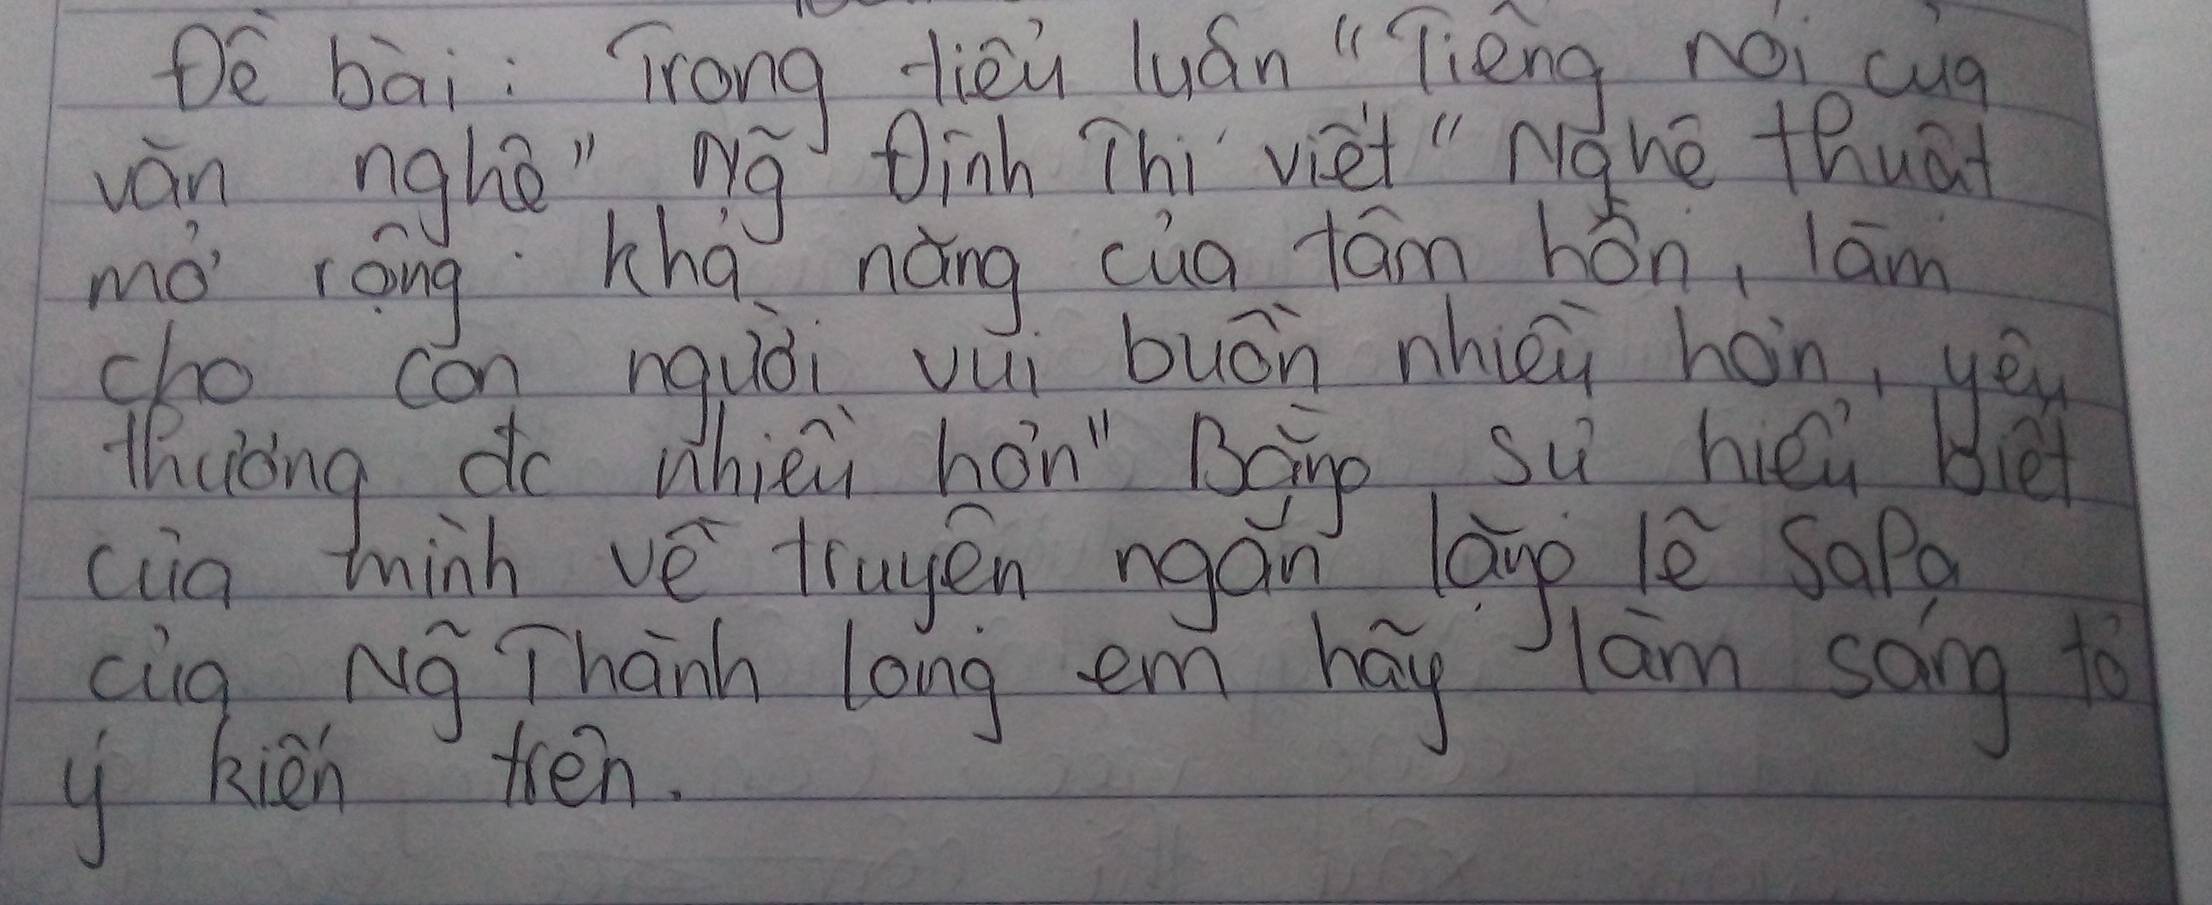 Đề bài: Trong tiểu luận "Tiếng nói của
văn nghệ" Ng~ Đình Thi viết "Nghệ thuật
mở rộng khả năng của tâm hồn, làm
cho con người vui buồn nhiều hơn, yêu
thương đc nhiều hơn" Bằng sự hiểu biết
của mình về truyện ngắn lặng lẽ SaPa
của Ng~ Thành long em hãy làm sáng tỏ
ý kiến trên.